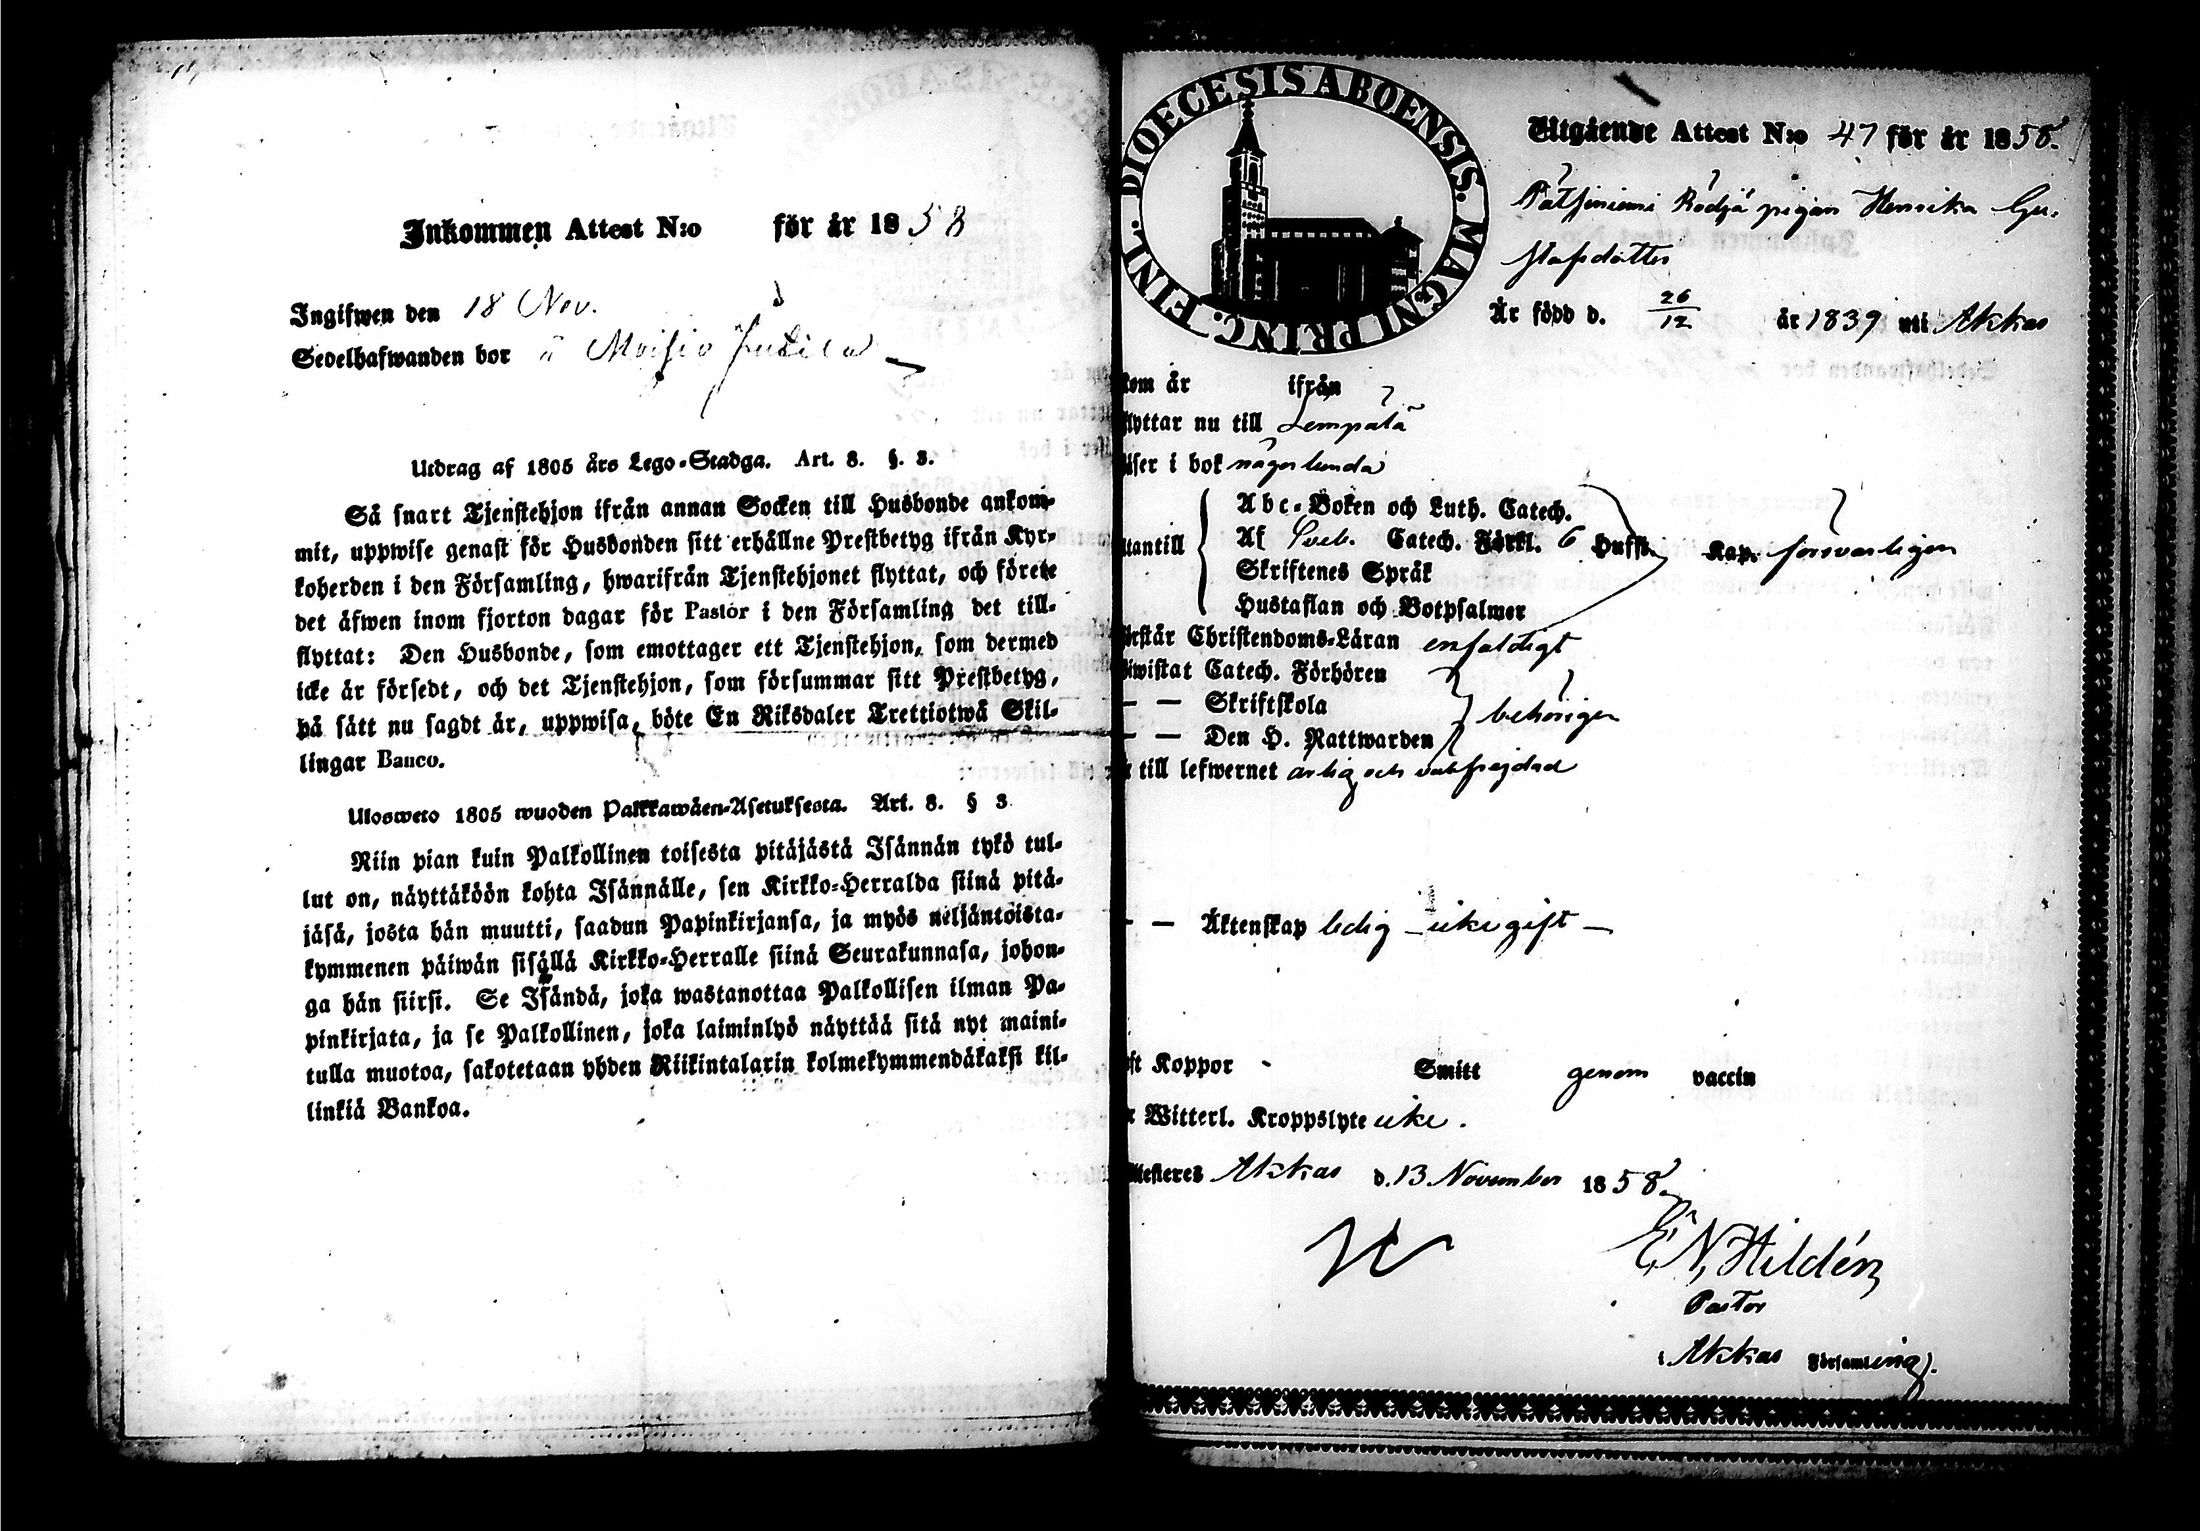 Inkommen Attest N:o för år 1858
Ingifwen den 18 Nov.
Sedelhafwanden bor å Moisio Jutila
Utdrag af 1805 års Lego-Stadga. Art. 8. §. 3.
Så snart Tjenstehjon ifrån annan Socken till Husbonde ankom-
mit, uppwise genast för Husbonden sitt erhållne Prestbetyg ifrån Kyr-
koherden i den Församling, hwarifrån Tjenstehjonet flyttat, och förete
det äfwen inom fjorton dagar för Pastor i den Församling det till-
flyttat: Den Husbonde, som emottager ett Tjenstehjon, som dermed
icke är försedt, och det Tjenstehjon, som försummar sitt Prestbetyg,
på sätt nu sagdt är, uppwisa, böte En Riksdaler Trettiotwå Skil-
lingar Banco.
Ulosweto 1805 wuoden Palkkawäen-Asetuksesta. Art. 8. § 3
Niin pian kuin Palkollinen toisesta pitäjästä Isännän tykö tul-
lut on, näyttäköön kohta Isännälle, sen Kirkko-Herralda siinä pitä-
jäsä, josta hän muutti, saadun Papinkirjansa, ja myös neljäntoista-
kymmenen päiwän sisällä Kirkko-Herralle siinä Seurakunnasa, johon-
ga hän siirsi. Se Isändä, joka wastanottaa Palkollisen ilman Pa-
pinkirjata, ja se Palkollinen, joka laiminlyö näyttää sitä nyt maini-
tulla muotoa, sakotetaan yhden Riikintalarin kolmekymmendäkaksi kil-
linkiä Bankoa.
DIOECESIS ABOENSIS. MAGNI PRINC. FINL.
Utgående Attest N:o 47 för år 1858.
Rödjä pigan Henrika Gu-
stafsdotter
Är född d. 26/12 år 1839 uti Akkas
kom år ifrån
flyttar nu till Lempälä
läser i bok någorlunda
utantill
Abc-Boken och Luth. Catech.
Af Sveb. Catech. Förkl. 6 Hufst. Kap. försvarligen
Skriftenes Språk
Hustaflan och Botpsalmer
örstår Christendoms-Läran enfaldigt
iwistat Catech. Förhören
— — Skriftskola behörigen
— — Den H. Nattwarden
r till lefwernet ärlig och välfrejdad
— — Äktenskap ledig – icke gift –
aft Koppor - Smitt genom vaccin
r Witterl. Kroppslyte icke.
ttesteres Akkas d. 13 November 1858.
E. N. Hildén
Pastor
i Akkas Församling.